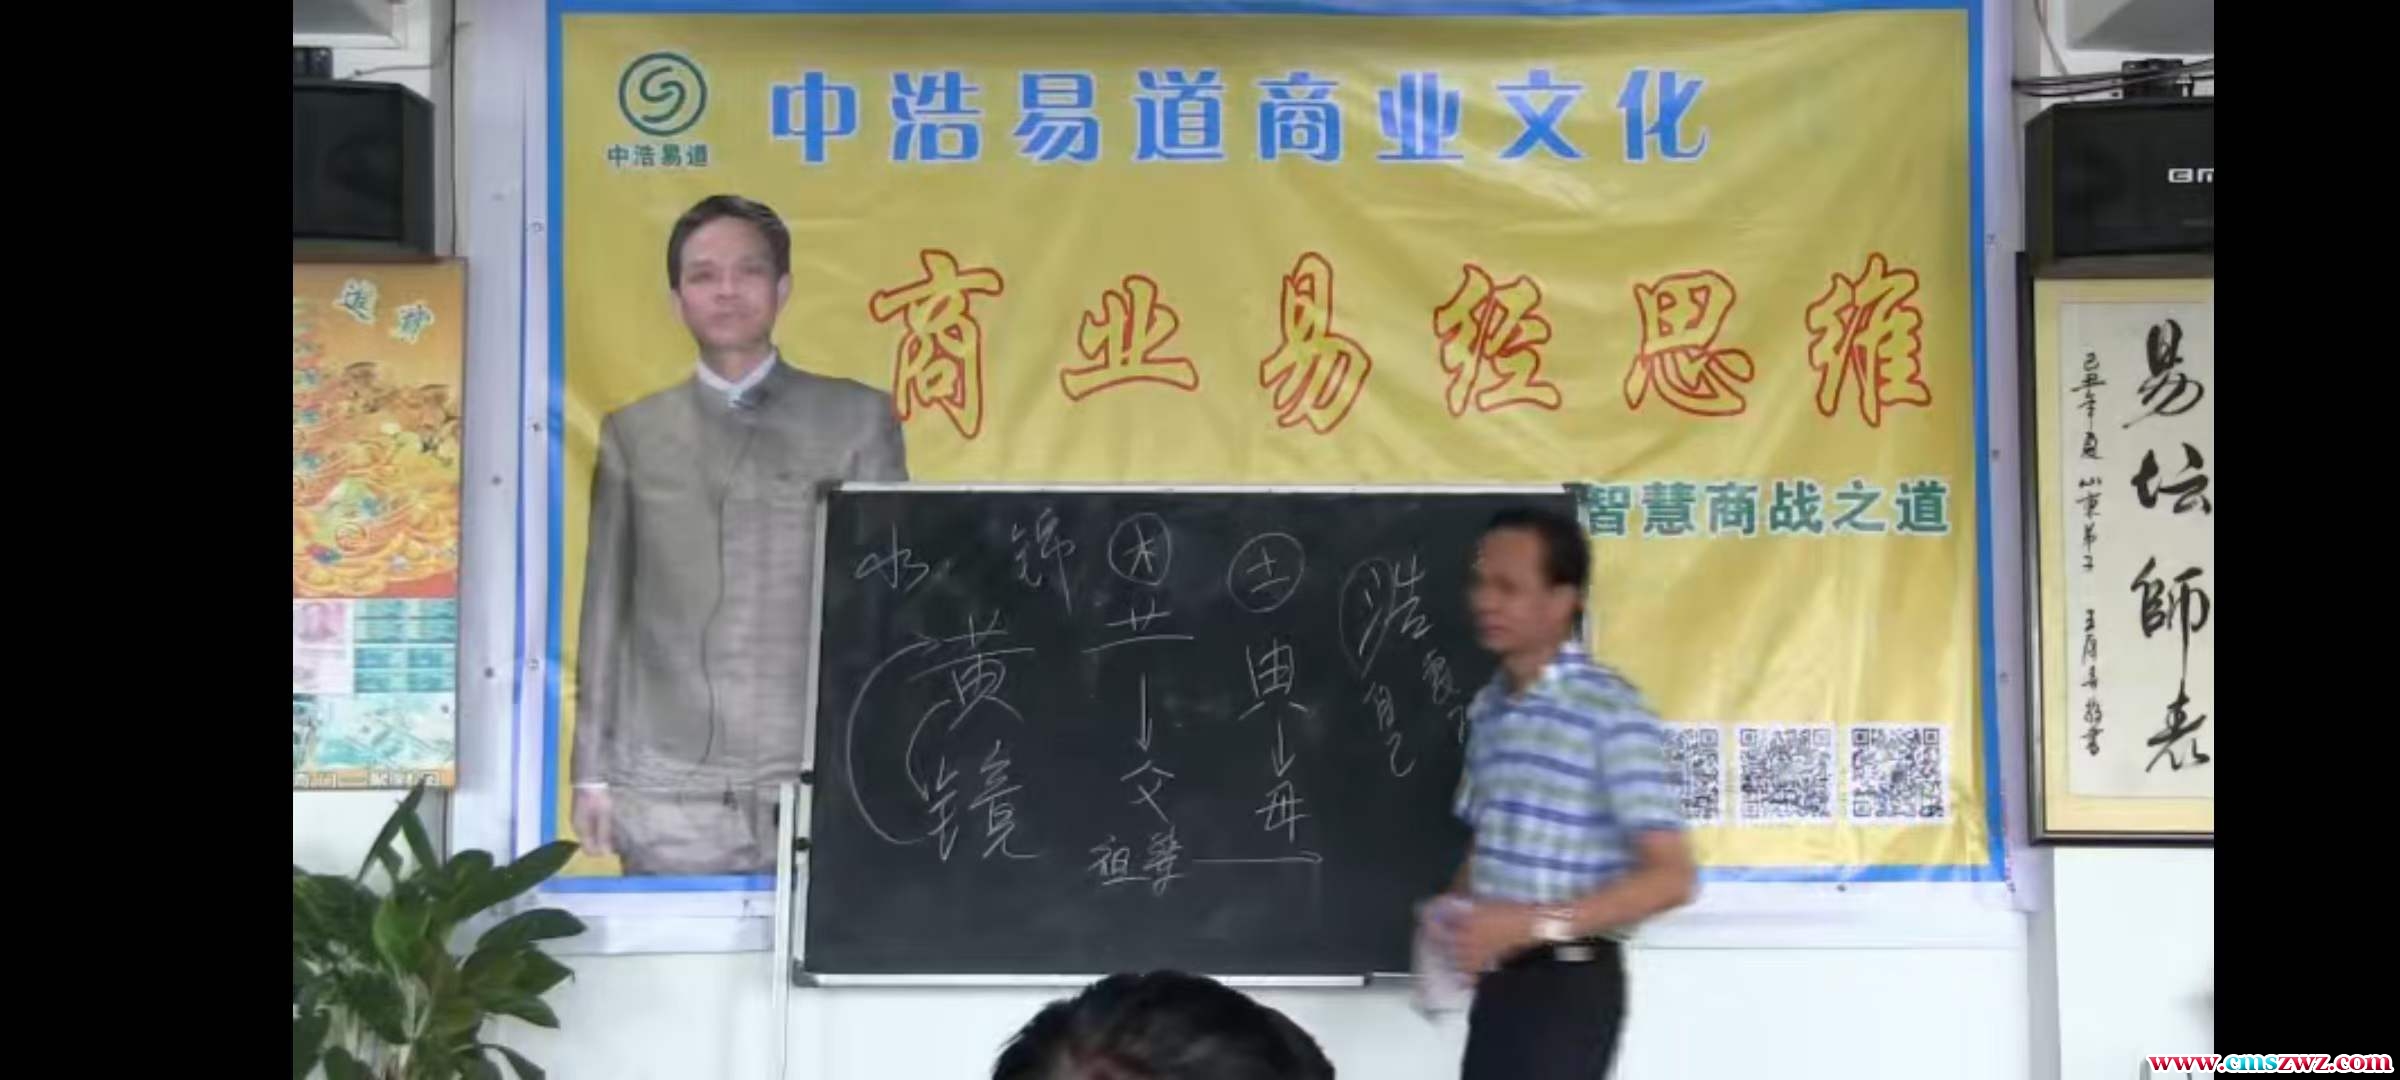 中浩易道商业文化
中浩易道
商业易经思维
智慧商战之道
易坛師表
己丑年夏 山東弟子
水 锦 木 土 浩
黄
镜
父
母
自己
祖
www.cmszwz.com